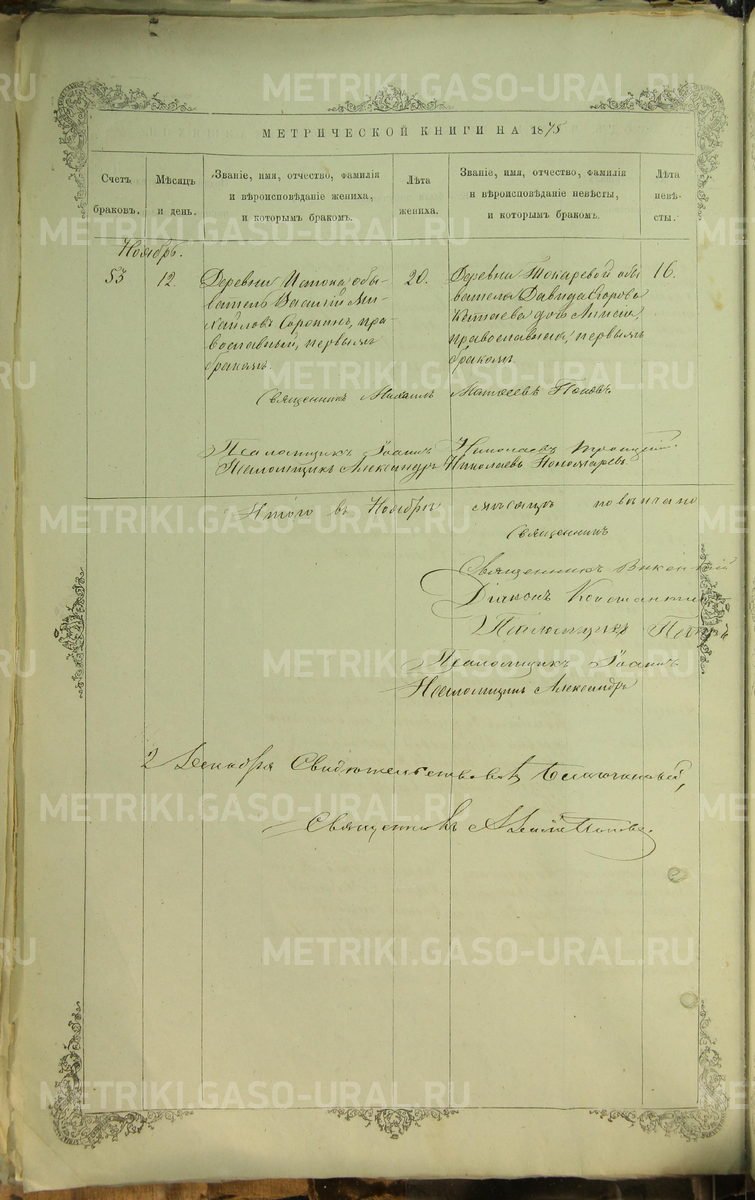 МЕТРИЧЕСКОЙ КНИГИ НА 1875
Счетъ браковъ.
Мѣсяцъ и день.
Званіе, имя, отчество, фамилія
и вѣроисповѣданіе жениха,
и которымъ бракомъ.
Лѣта жениха.
Званіе, имя, отчество, фамилія
и вѣроисповѣданіе невѣсты,
и которымъ бракомъ.
Лѣта невѣ-
сты.
Ноябрь.
53
12.
Деревни Истока обы-
ватель Василій Ми-
хайловъ Сорокинъ, пра-
вославный, первымъ
бракомъ.
20.
Деревни Токаревой обы
вателя Давида Егорова
Китаева дочь
православная, первымъ
бракомъ.
16.
Священникъ Михаилъ Матѳеевъ Поповъ.
Псаломщикъ Іоаннъ Николаевъ
Псаломщикъ Александръ Николаевъ Пономаревъ.
Итого въ Ноябрѣ мѣсяцѣ повѣнчано
Священникъ
Священникъ Викентій
Діаконъ Константинъ
Псаломщикъ Петръ
Псаломщикъ Іоаннъ
Псаломщикъ Александръ
2 Декабря Свидѣтельствовалъ Благочинный,
Священникъ
METRIKI.GASO-URAL.RU